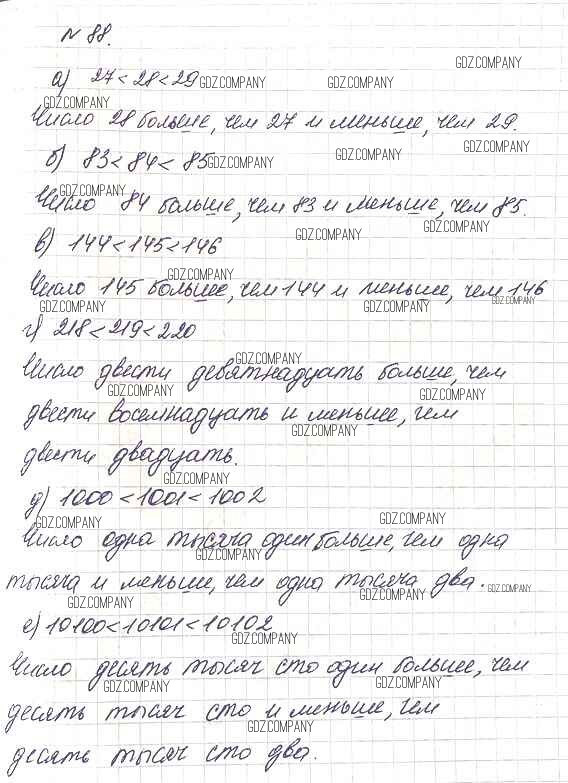 N 88.
GDZ.COMPANY
а) 27 < 28 < 29 GDZ.COMPANY GDZ.COMPANY
GDZ.COMPANY
Число 28 больше, чем 27 и меньше, чем 29.
GDZ.COMPANY
б) 83 < 84 < 85 GDZ.COMPANY GDZ.COMPANY
GDZ.COMPANY
Число 84 больше, чем 83 и меньше, чем 85.
GDZ.COMPANY GDZ.COMPANY
в) 144 < 145 < 146
GDZ.COMPANY
Число 145 больше, чем 144 и меньше, чем 146
GDZ.COMPANY GDZ.COMPANY GDZ.COMPANY
г) 218 < 219 < 220
GDZ.COMPANY
Число двести девятнадцать больше, чем
GDZ.COMPANY GDZ.COMPANY
двести восемнадцать и меньше, чем
GDZ.COMPANY
двести двадцать.
GDZ.COMPANY
д) 1000 < 1001 < 1002
GDZ.COMPANY GDZ.COMPANY
Число одна тысяча один больше, чем одна
GDZ.COMPANY
тысяча и меньше, чем одна тысяча два. GDZ.COMPANY
GDZ.COMPANY GDZ.COMPANY
е) 10100 < 10101 < 10102
GDZ.COMPANY
Число десять тысяч сто один больше, чем
GDZ.COMPANY GDZ.COMPANY
десять тысяч сто и меньше, чем
GDZ.COMPANY
десять тысяч сто два.